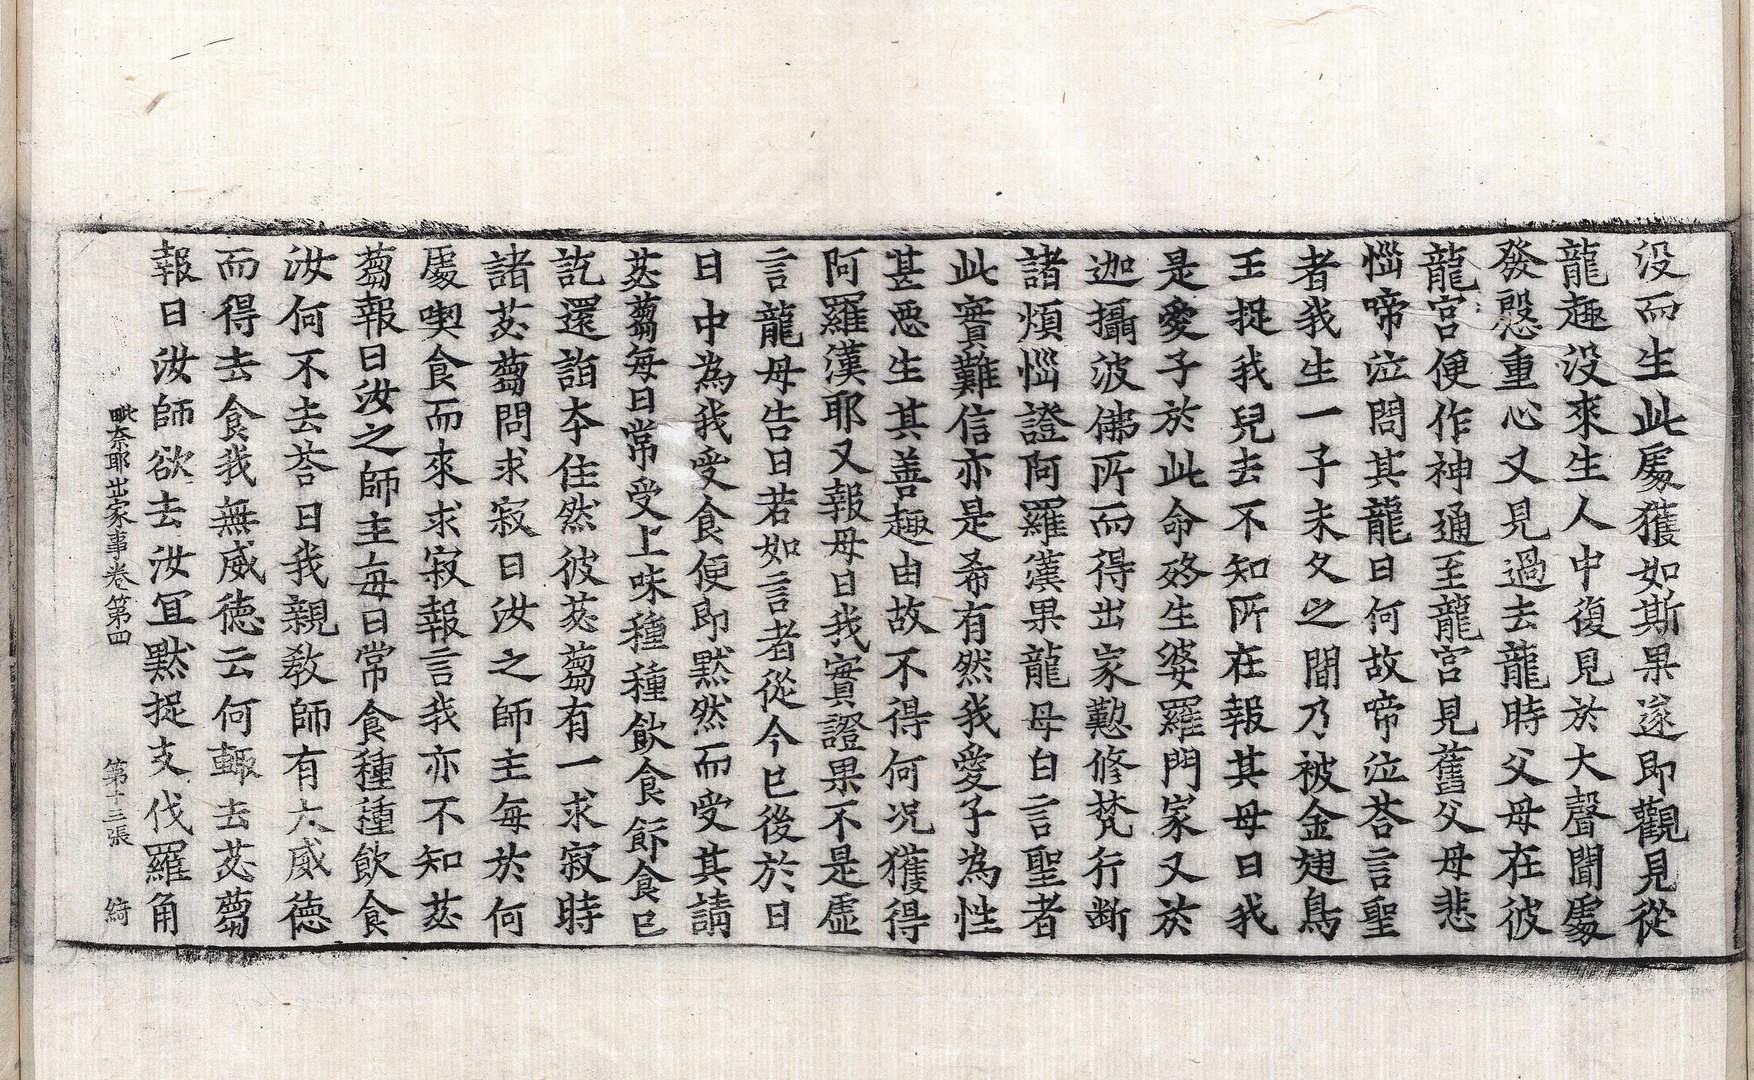 没而生此處獲如斯果遂即觀見從
龍趣没來生人中復見於大聲聞處
發慇重心又見過去龍時父母在彼
龍宮便作神通至龍宮見舊父母悲
惱啼泣問其龍曰何故啼泣荅言聖
者我生一子未久之間乃被金翅鳥
王捉我兒去不知所在報其母曰我
是愛子於此命終生婆羅門家又於
迦攝波佛所而得出家懃修梵行断
諸煩惱證阿羅漢果龍母白言聖者
此實難信亦是希有然我愛子為性
甚惡生其善趣由故不得何况獲得
阿羅漢耶又報母曰我實證果不是虛
言龍母告曰若如言者從今已後於日
日中為我受食便即默然而受其請
苾蒭每日常受上味種種飲食飾食已
訖還詣本住然彼苾蒭有一求寂時
諸苾蒭問求寂曰汝之師主每於何
處喫食而來求寂報言我亦不知苾
蒭報曰汝之師主每日常食種種飲食
汝何不去荅曰我親教師有大威德
而得去食我無威德云何輙去苾蒭
報曰汝師欲去汝冝默捉支伐羅角
毗奈耶出家事卷第四 第十三張 綺